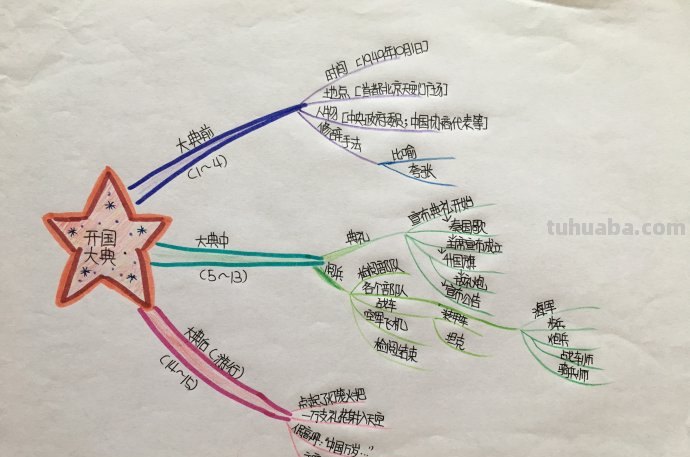 开国
大典
大典前
(1～4)
时间 [1949年10月1日]
地点 [首都北京天安门广场]
人物
修辞手法
比喻
夸张
大典中
(5～13)
典礼
宣布典礼开始
奏国歌
主席宣布成立
升国旗
宣布公告
阅兵
检阅部队
各个部队
战车
装甲车
坦克
空军飞机
检阅结束
海军
步兵
炮兵
战车师
骑兵师
大典后(游行)
(14～15)
点起了灯笼火把
一万支礼花射入天空
tuhuaba.com